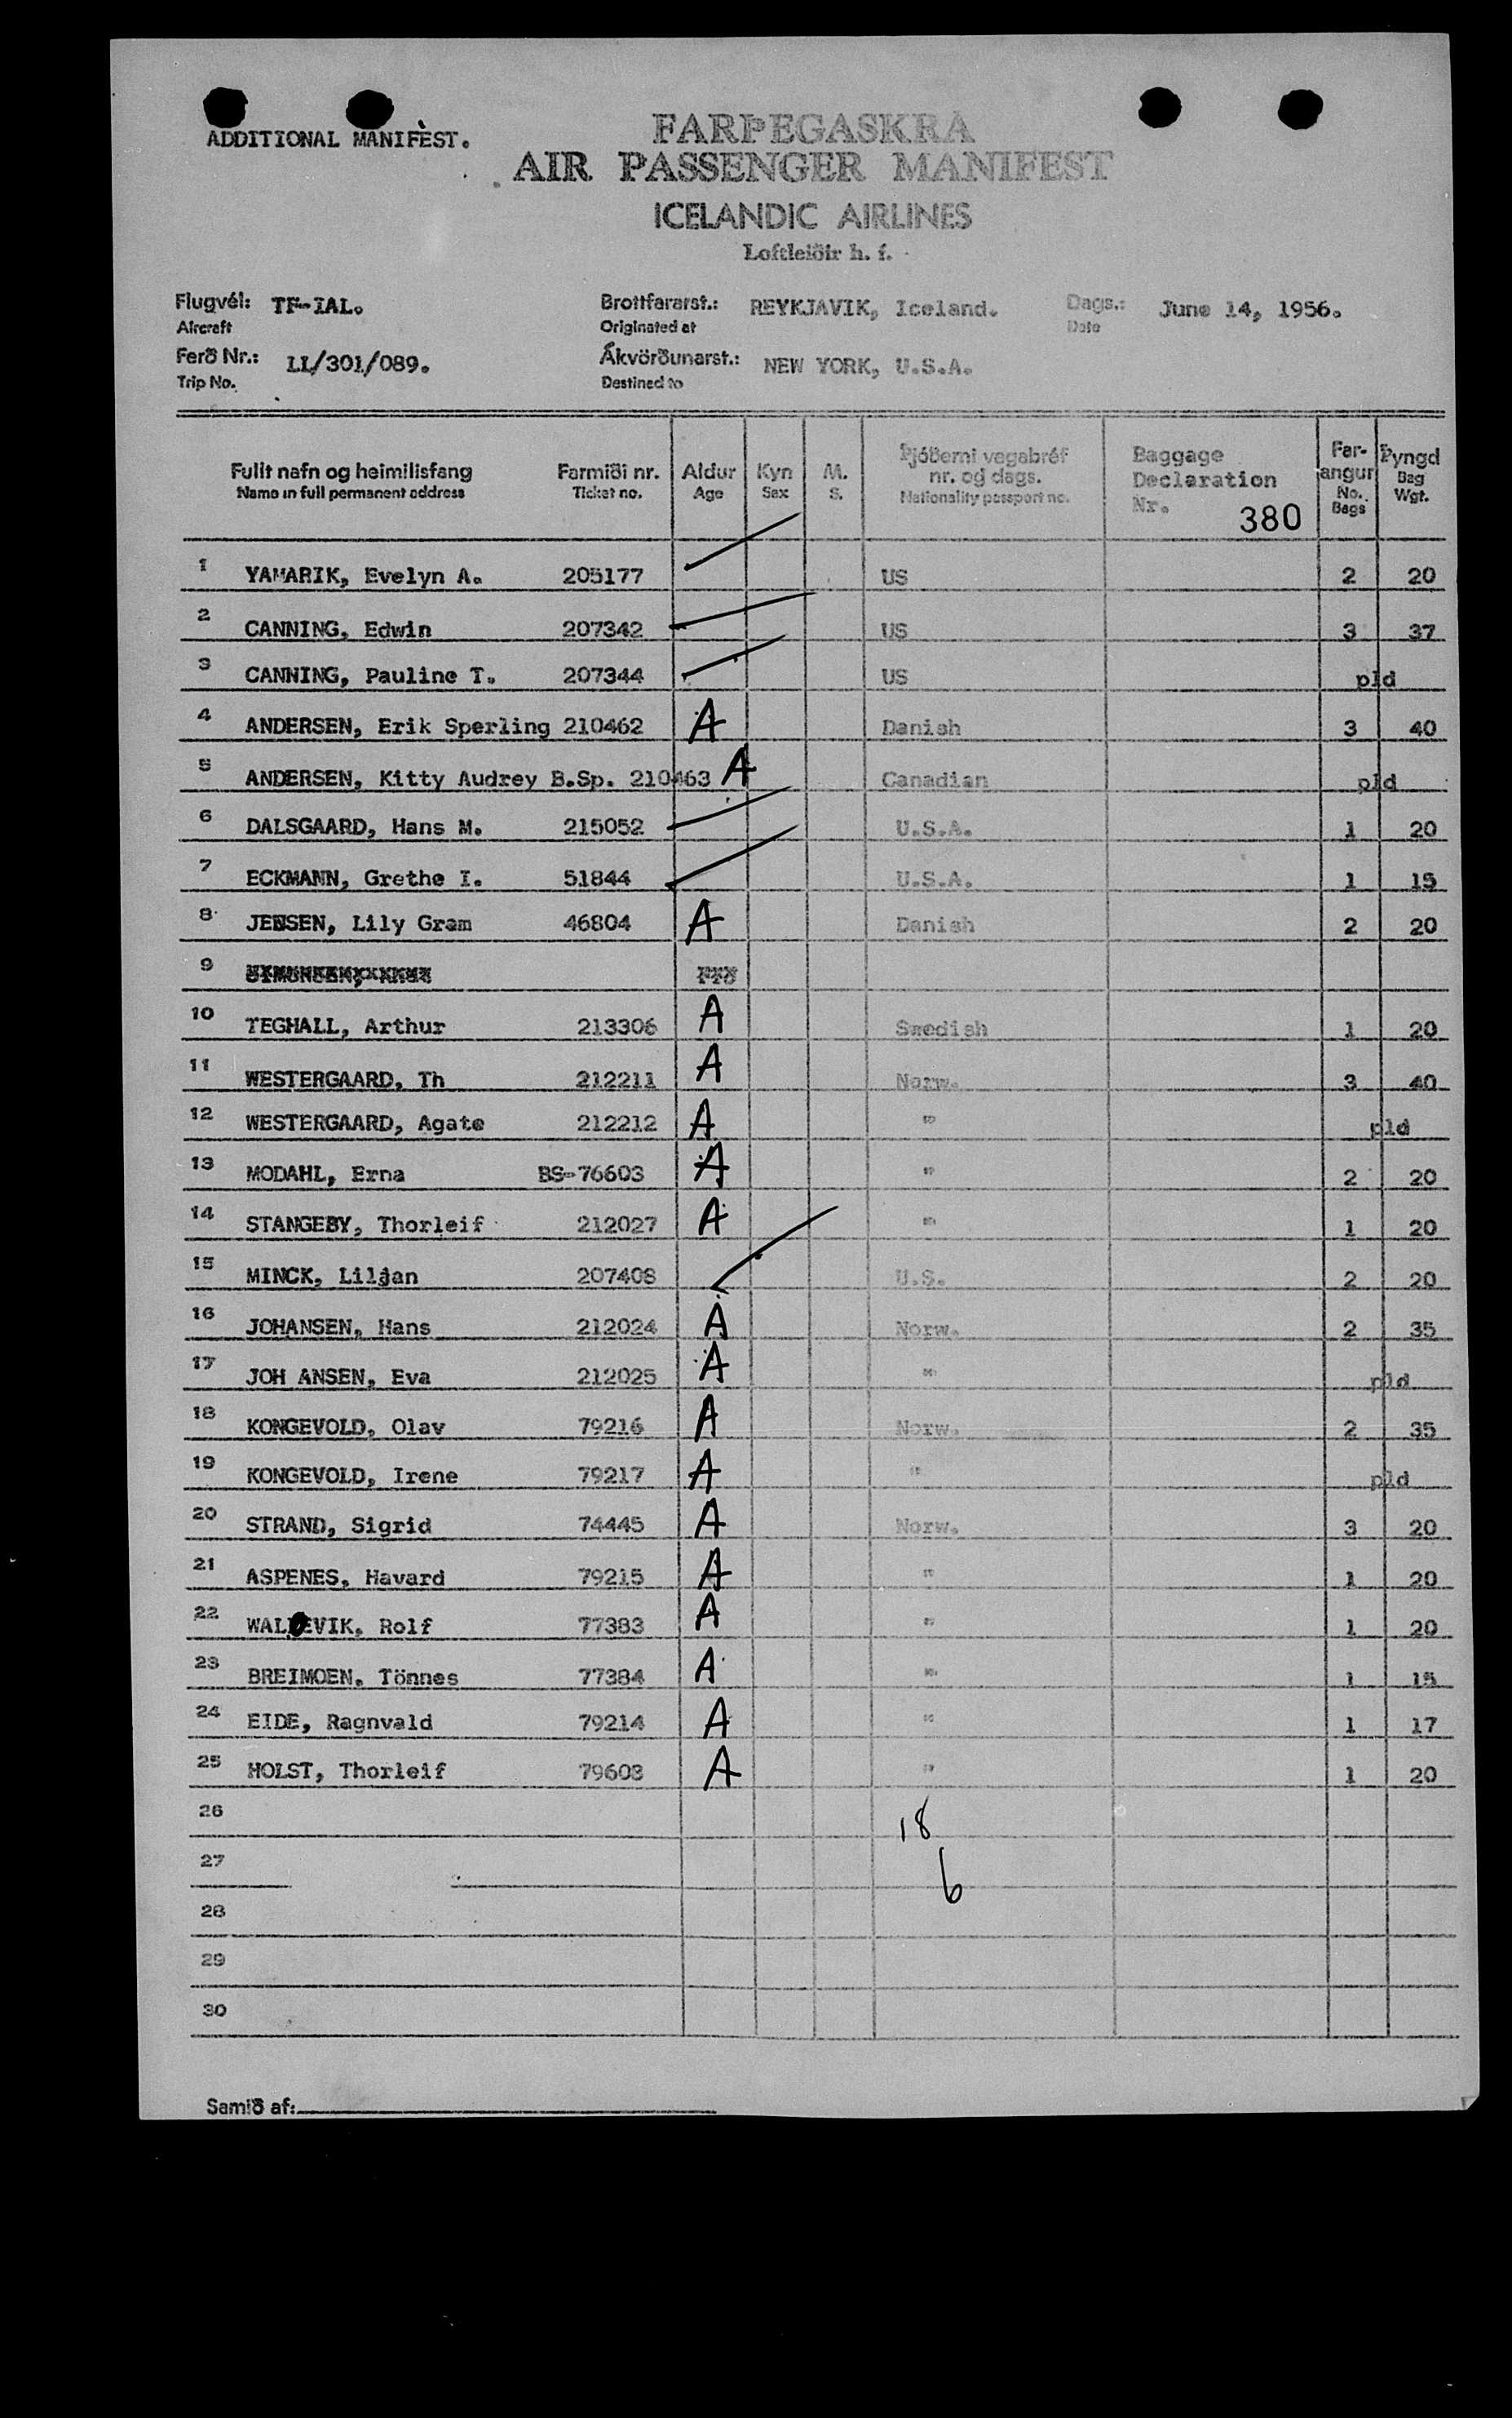 ADDITIONAL MANIFEST.
FARÞEGASKRÁ
AIR PASSENGER MANIFEST
ICELANDIC AIRLINES
Loftleiðir h. f.
Flugvél: TF-IAL. Brottfararst.: REYKJAVIK, Iceland. Dags.: June 14, 1956.
Aircraft Originated at Date
Ferð Nr.: LL/301/089. Ákvörðunarst.: NEW YORK, U.S.A.
Trip No. Destined to
Fullt nafn og heimilisfang Farmiði nr. Aldur Kyn M. Þjóðerni vegabréf nr. og dags. Baggage Declaration Nr. 380 Far-angur Þyngd
Name in full permanent address Ticket no. Age Sex S. Nationality passport no. No. Bags Bag Wgt.
1 YAMARIK, Evelyn A. 205177 US 2 20
2 CANNING, Edwin 207342 US 3 37
3 CANNING, Pauline T. 207344 US pld
4 ANDERSEN, Erik Sperling 210462 A Danish 3 40
5 ANDERSEN, Kitty Audrey B.Sp. 210463 A Canadian pld
6 DALSGAARD, Hans M. 215052 U.S.A. 1 20
7 ECKMANN, Grethe I. 51844 U.S.A. 1 15
8 JENSEN, Lily Gram 46804 A Danish 2 20
9
10 TEGHALL, Arthur 213306 A Swedish 1 20
11 WESTERGAARD, Th 212211 A Norw. 3 40
12 WESTERGAARD, Agate 212212 A " pld
13 MODAHL, Erna BS-76603 A " 2 20
14 STANGEBY, Thorleif 212027 A " 1 20
15 MINCK, Liljan 207408 U.S. 2 20
16 JOHANSEN, Hans 212024 A Norw. 2 35
17 JOH ANSEN, Eva 212025 A " pld
18 KONGEVOLD, Olav 79216 A Norw. 2 35
19 KONGEVOLD, Irene 79217 A " pld
20 STRAND, Sigrid 74445 A Norw. 3 20
21 ASPENES, Havard 79215 A " 1 20
22 Rolf 77383 A " 1 20
23 BREIMOEN, Tönnes 77384 A " 1 15
24 EIDE, Ragnvald 79214 A " 1 17
25 HOLST, Thorleif 79603 A " 1 20
26 18
27 6
28
29
30
Samið af: